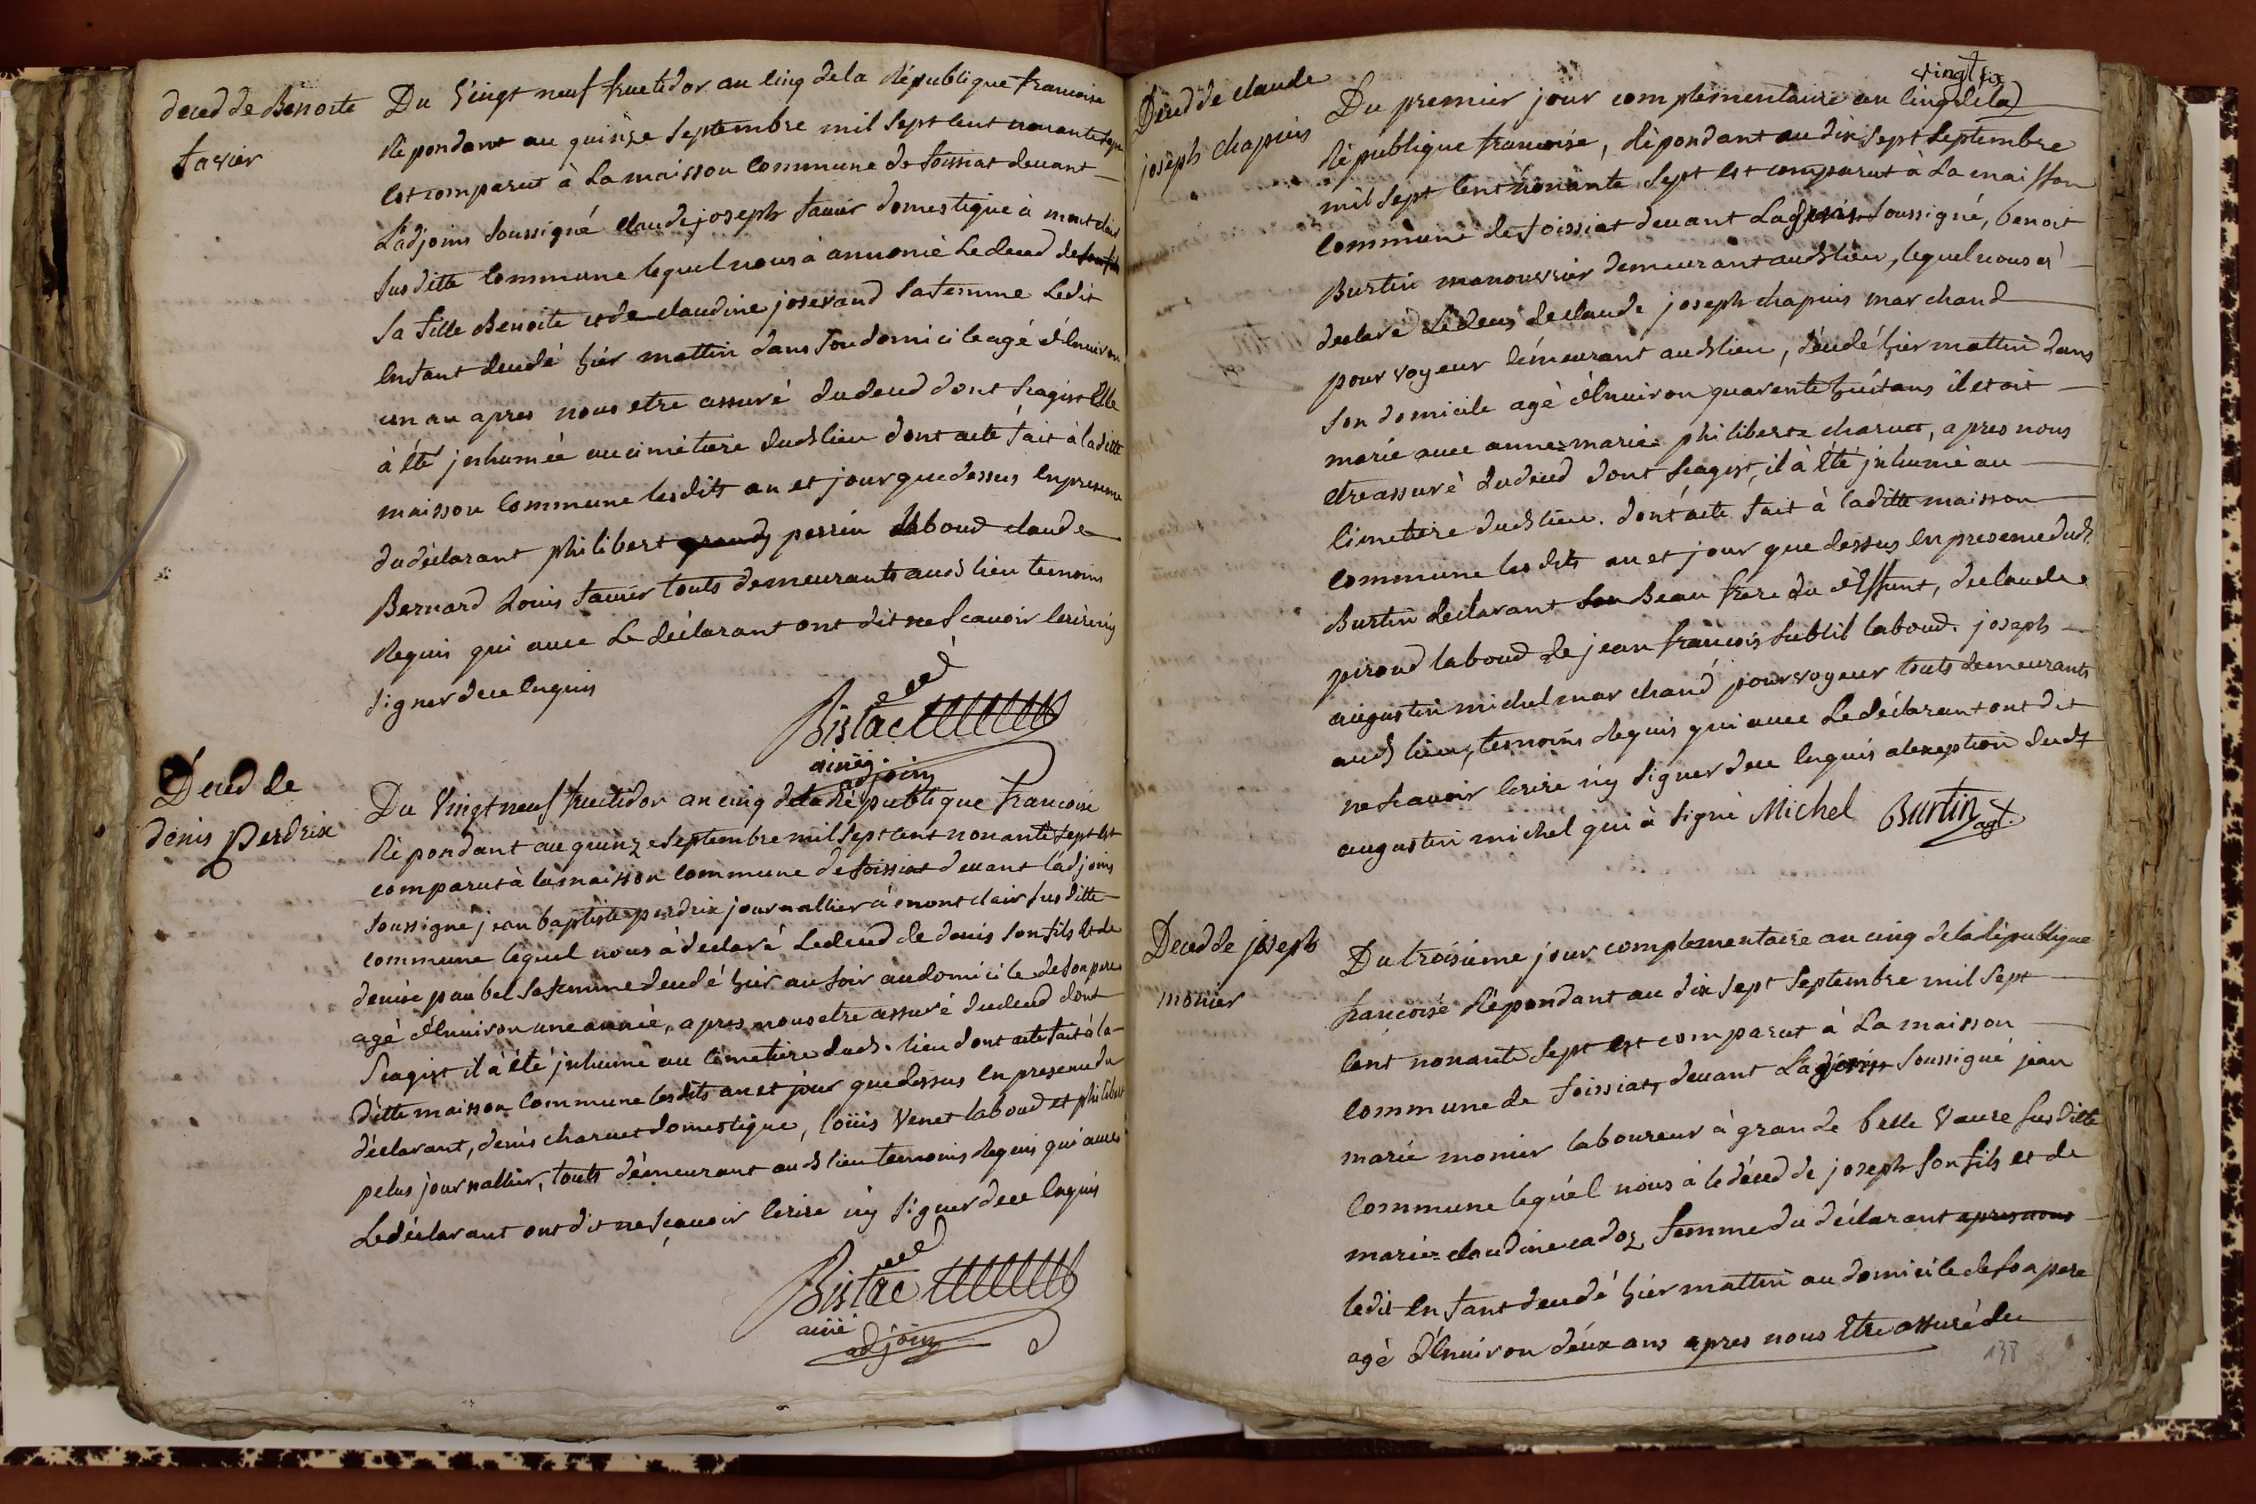 deced de Benoite
favier
Du Vingt neuf fructidor an cinq de la République francoise
Répondant au quinze Septembre mil Sept cent nonante sept
Est comparut à La maisson Commune de foissiat devant
Ladjoint Soussigné claude joseph favier domestique à montclair
Susditte Commune lequel nous à annoncé Le deced de son fils
Sa fille Benoite et de claudine joserand Sa femme Ledit
Enfant décédé hier mattin dans son domicile agé d'Environ
un an apres nous etre assuré du deced dont Sagist Elle
à Eté jnhumée au cimetiere dud lieu dont acte fait à laditte
maisson Commune lesdits an et jour que dessus En presence
du déclarant philibert grand perrin laboud claude
Bernard Louis favier touts demeurants aud lieu temoins
Requis qui avec Le déclarant ont dit ne Scavoir Ecrire ny
Signer de ce Enquis
Bistac
ainé
adjoint
Deced de
denis perdrix
Du Vingt neuf fructidor an cinq de la République francoise
Répondant au quinze Septembre mil Sept cent nonante Sept Est
comparut à la maisson Commune de foissiat devant Ladjoint
Soussigné jean baptiste perdrix journallier à montclair Susditte
commune lequel nous à declaré Le deced de denis son fils et de
denise paubel Sa femme décédé hier au soir au domicile de son pere
agé d'Environ une année, apres nous etre assuré du deced dont
Sagist il à Eté jnhumé au Cimetiere dud. lieu dont acte fait à la
ditte maisson Commune lesdits an et jour que dessus En presence du
déclarant, denis charvet domestique, loüis Venet laboud et philibert
pelus journallier, touts démeurant aud lieu temoins Requis qui avec
Le déclarant ont dit ne scavoir Ecrire ny Signer de ce Enquis
Bistac
ainé
adjoint
Deced de claude
joseph chapuis
vingt six
Du premier jour complementaire an cinq de la
République francoise, Répondant au dix sept Septembre
mil Sept Cent nonante Sept Est comparut à La maisson
Commune de foissiat devant Lagent Soussigné, benoit
Burtin manouvrier demeurant aud lieu, lequel nous à
declaré Le deces de claude joseph chapuis marchand
pourvoyeur démeurant aud lieu, décédé hier mattin dans
Son domicile agé d'Environ quarente huit ans il etoit
marié avec anne-marie philiberte charvet, apres nous
etre assuré du deced dont Sagist, il à Eté jnhumé au
Cimetiere dud lieu. dont acte fait à laditte maisson
Commune lesdits an et jour que dessus En presence dud.
Burtin declarant son Beau frere du deffunt, de claude
piroud laboud de jean francois Sublil laboud. joseph
augustin michel marchand pourvoyeur touts demeurants
aud lieu, temoins Requis qui avec Le déclarant ont dit
ne scavoir Ecrire ny Signer de ce Enquis à l'exeption dudt
augustin michel qui à Signé Michel Burtin agt.
Deced de joseph
monier
Du troisieme jour complementaire an cinq de la République
francoise Répondant au dix sept Septembre mil Sept
Cent nonante Sept Est comparut à La maisson
Commune de foissiat, devant Lagent Soussigné jean
marie monier laboureur à grande belle Vavre Susditte
Commune lequel nous à le déced de joseph son fils et de
marie-claudine cadoz femme du déclarant apres nous
ledit Enfant décédé hier mattin au domicile de son pere
agé d'Environ déux ans apres nous Etre assuré du
138